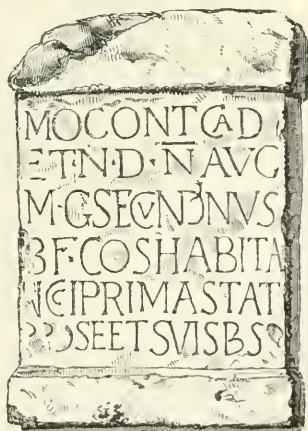 MOCONT CAD
ET·N·D·N̄ AVG
M·G·SECVNDINVS
BF·COS HABITA
NCI PRIMA STAT
PRO SE ET SVIS POS